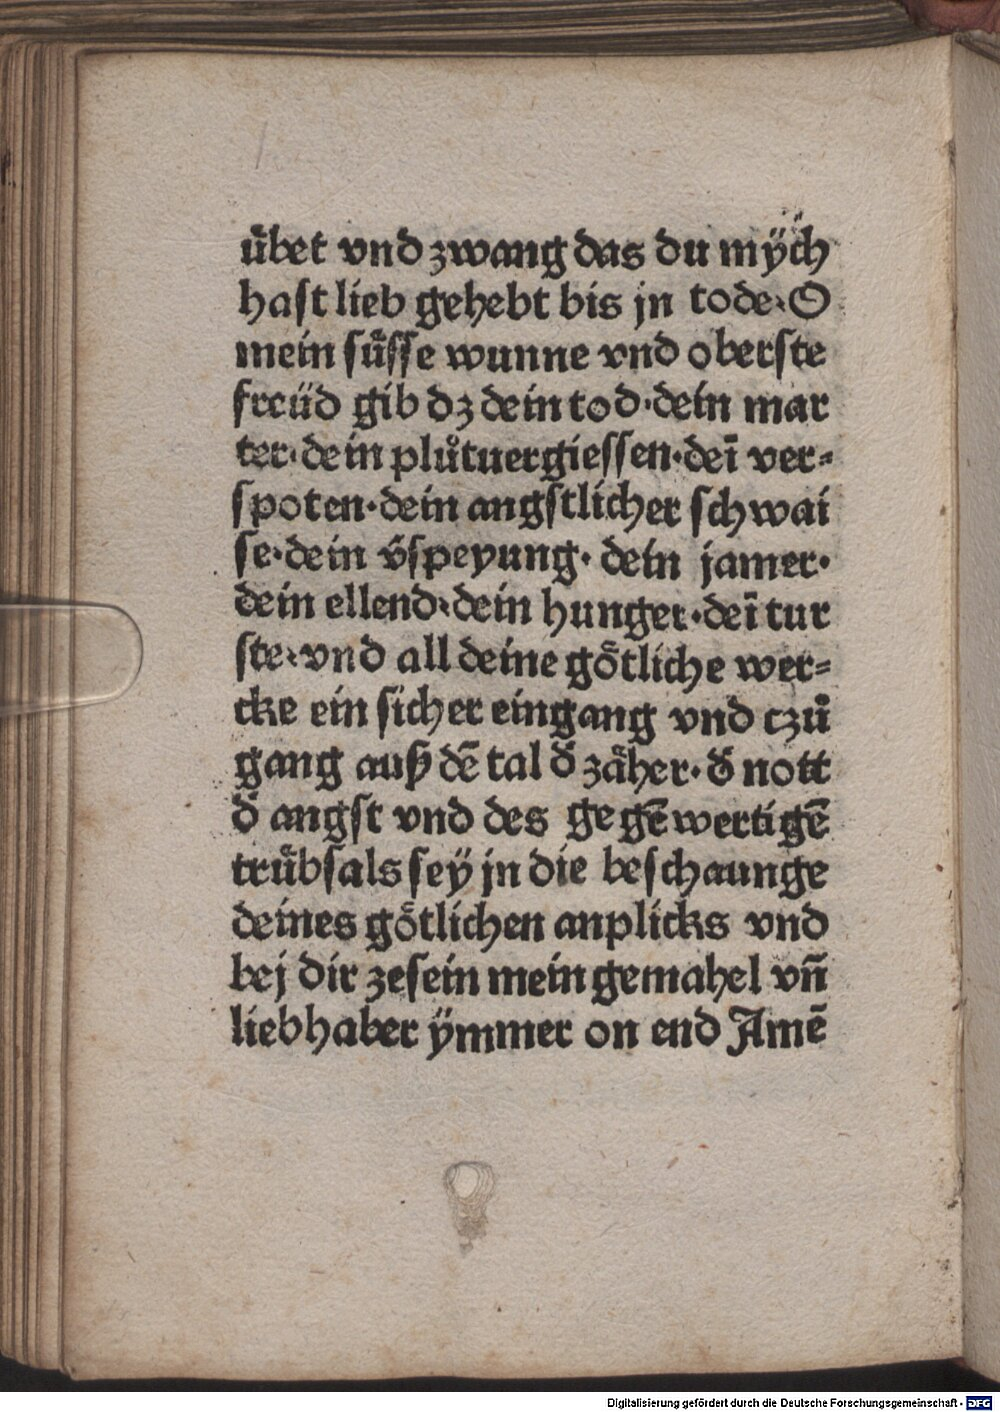 uͤbet vnd zwang das du mÿch
hast lieb gehebt bis jn tode· O
mein suͤsse wunne vnd oberste
freüd gib dz dein tod·dein mar
ter·dein plůtuergiessen·deī ver⸗
spoten·dein angstlicher schwai
se·dein v̄speyung· dein jamer·
dein ellend·dein hunger·deī tur
ste·vnd all deine goͤtliche wer⸗
cke ein sicher eingang vnd czů
gang auß dē tal d̄ zaͤher·d̄ nott
d̄ angst vnd des gegēwertigē
truͤbsals seÿ jn die beschaunge
deines goͤtlichen anplicks vnd
bej dir zesein mein gemahel vn̄
liebhaber ÿmmer on end Amē
Digitalisierung gefördert durch die Deutsche Forschungsgemeinschaft - DFG